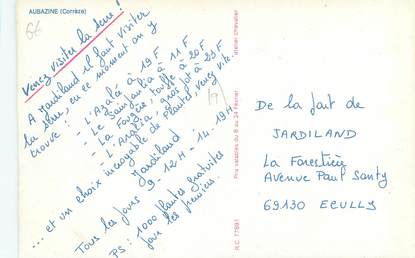 AUBAZINE (Corrèze)
Venez visiter la serre !
A Jardiland il faut visiter
la serre, en ce moment on y
trouve : - L'Azalée à 19 F
- Le Saintpaulia à 11 F
- La Fougère, touffe à 20 F
- L'Aralia, gros pot à 29 F
... et un choix incroyable de plantes. Venez vite.
Jardiland
Tous les jours 9-12H - 14-19H
PS : 1000 plantes gratuites
pour les premiers.
Prix valables du 8 au 24 février
atelier Chevalier
R.C. 77B91
De la part de
JARDILAND
La Forestière
Avenue Paul Santy
69130 ECULLY